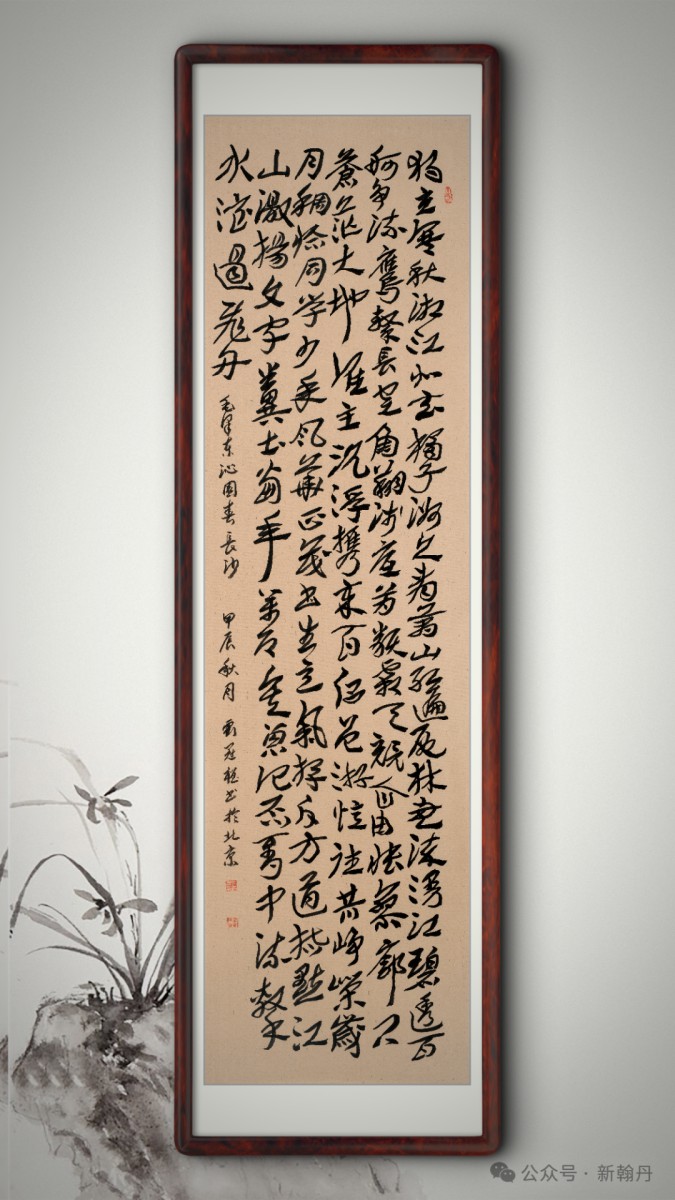 独立寒秋湘江北去橘子洲头看萬山紅遍层林尽染漫江碧透百
舸争流鹰擊長空魚翔浅底万類霜天競自由怅寥廓问
蒼茫大地谁主沉浮携来百侣曾游忆往昔峥嵘歲
月稠恰同学少年风華正茂书生意氣挥斥方遒指點江
山激揚文字糞土當年萬户侯曾记否到中流擊
水浪遏飛舟
毛泽东沁园春長沙 甲辰秋月 书於北京
公众号·新翰丹